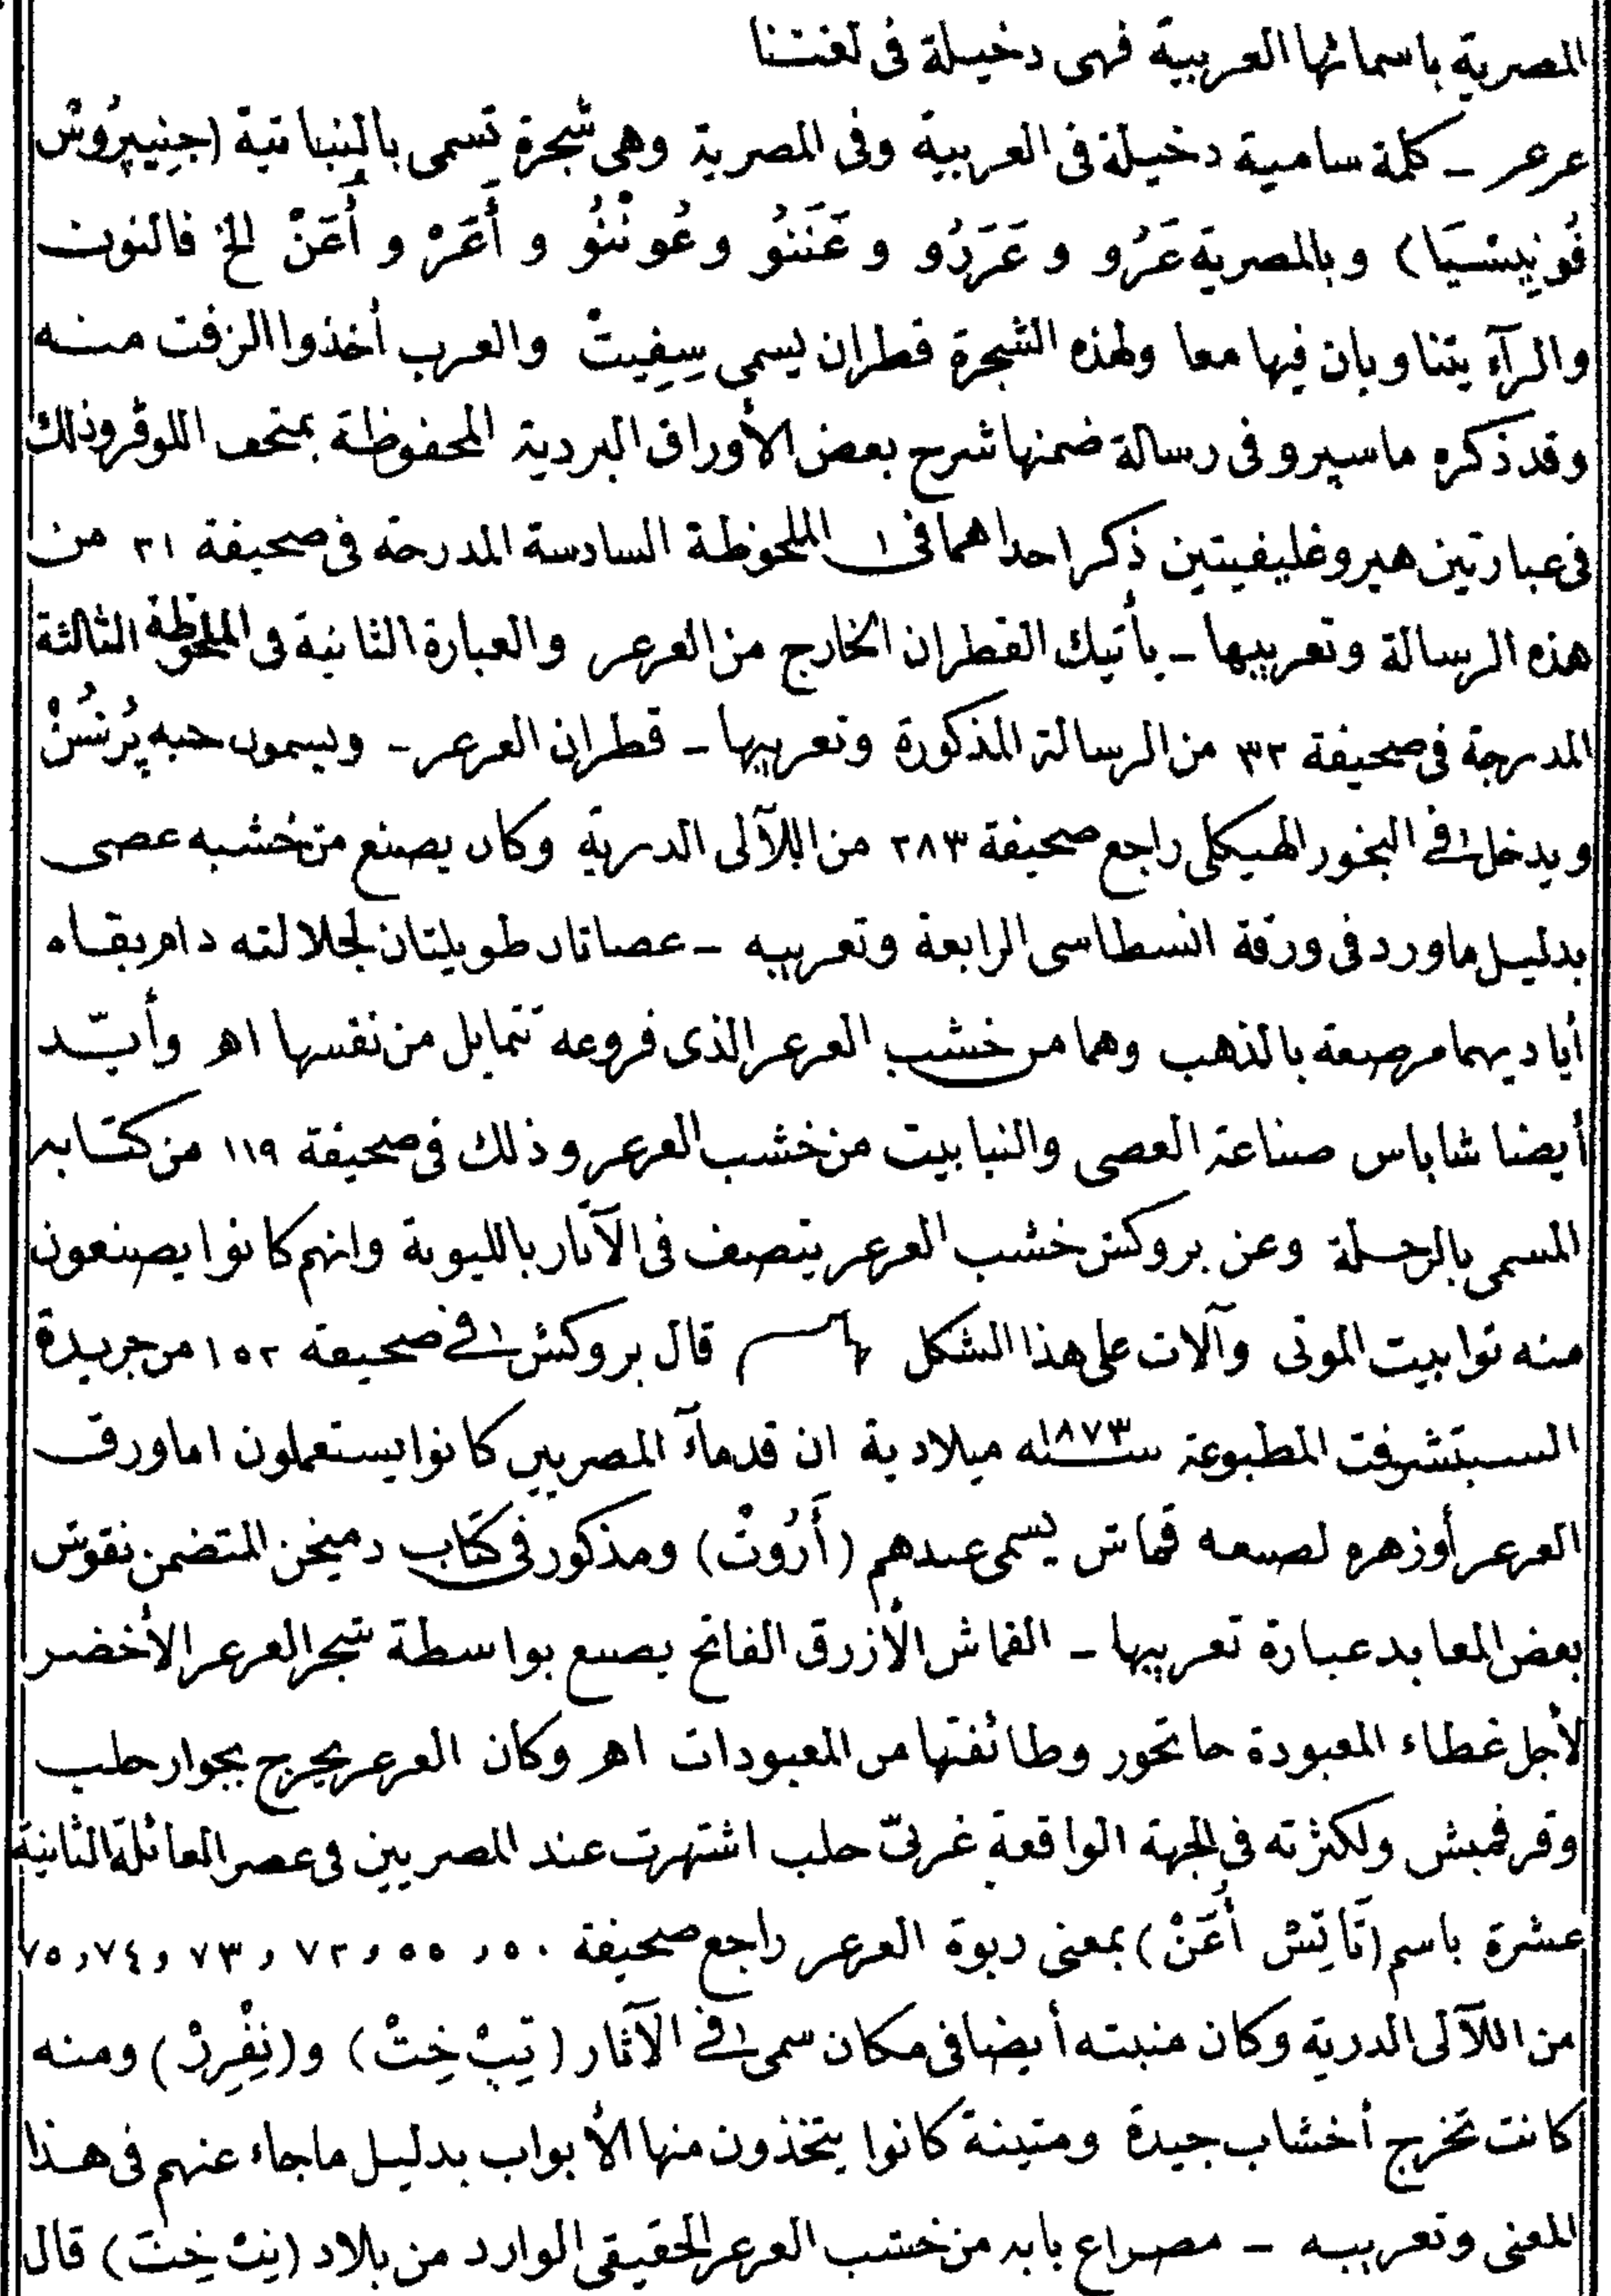 المصرية باسمائها العربية فهى دخيلة فى لغتنا
عرعر – كلمة سامية دخيلة فى العربية وفى المصرية وهى شجرة تسمى بالنباتية (جِنِيپِرُوسْ
فُونِيسْيَا) وبالمصرية عَرُو و عَرَرُو و عَنَنُو وعُونْنُو و أَعَرْ و أُعَنْ الخ فالنون
والرآء يتناوبان فيها معا ولهذه الشجرة قطران يسمى سِفِيتْ والعرب أخذوا الزفت منه
وقد ذكره ماسپرو فى رسالة ضمنها شرح بعض الأوراق البردية المحفوظة بمتحف اللوڤر وذلك
فى عبارتين هيروغليفيتين ذكر احداهما فى الملحوظة السادسة المدرحة فى صحيفة ٣١ من
هذه الرسالة وتعريبها – يأتيك القطران الخارج من العرعر والعبارة الثانية فى الملحوظة الثالثة
المدرجة فى صحيفة ٣٢ من الرسالة المذكورة وتعريبها – قطران العرعر – ويسمون حبه پُرْنسُنْ
ويدخل فى البخور الهيكلى راجع صحيفة ٢٨٣ من اللآلى الدرية وكان يصنع من خشبه عصى
بدليل ماورد فى ورقة انسطاسى الرابعة وتعريبه – عصاتان طويلتان لجلالته دام بقاه
أياديهما مرصعة بالذهب وهما من خشب العرعر الذى فروعه تتمايل من نفسها اه وأيّد
أيضا شاباس صناعة العصى والنبابيت من خشب العرعر وذلك فى صحيفة ١١٩ من كتابه
المسمى بالرحلة وعن بروكش خشب العرعر يتصف فى الآثار بالليونة وانهم كانوا يصنعون
منه توابيت الموتى وآلات على هذا الشكل قال بروكش فى صحيفة ١٥٢ من جريدة
السيتشرفت المطبوعة سنة ١٨٧٣ ميلادية ان قدمآء المصريين كانوا يستعملون اما ورق
العرعر أو زهره لصبغه قماش يسمى عندهم (أَرُوتْ) ومذكور فى كتاب دميخن المتضمن نقوش
بعض المعابد عبارة تعريبها – القماش الأزرق الفاتح يصبع بواسطة شجر العرعر الأخضر
لأجل غطاء المعبودة حاتحور وطائفتها من المعبودات اه وكان العرعر يخرج بجوار حلب
وقرقميش ولكثرته فى الجهة الواقعة غربىّ حلب اشتهرت عند المصريين فى عصر العائلة الثانية
عشرة باسم (تَاتِسْ أُعَنْ) بمعنى ربوة العرعر راجع صحيفة ٥٠ و ٥٥ و ٧٢ و ٧٣ و ٧٤ و ٧٥
من اللآلى الدرية وكان منبته أيضا فى مكان سمى فى الآثار (تِبْ خِتْ) و(نِفْرِرْ) ومنه
كانت تخرج أخشاب جيدة ومتينة كانوا يتخذون منها الأبواب بدليل ماجاء عنهم فى هذا
المعنى وتعريبه – مصراع بابه من خشب العرعر الحقيقى الوارد من بلاد (تِبْ خِتْ) قال